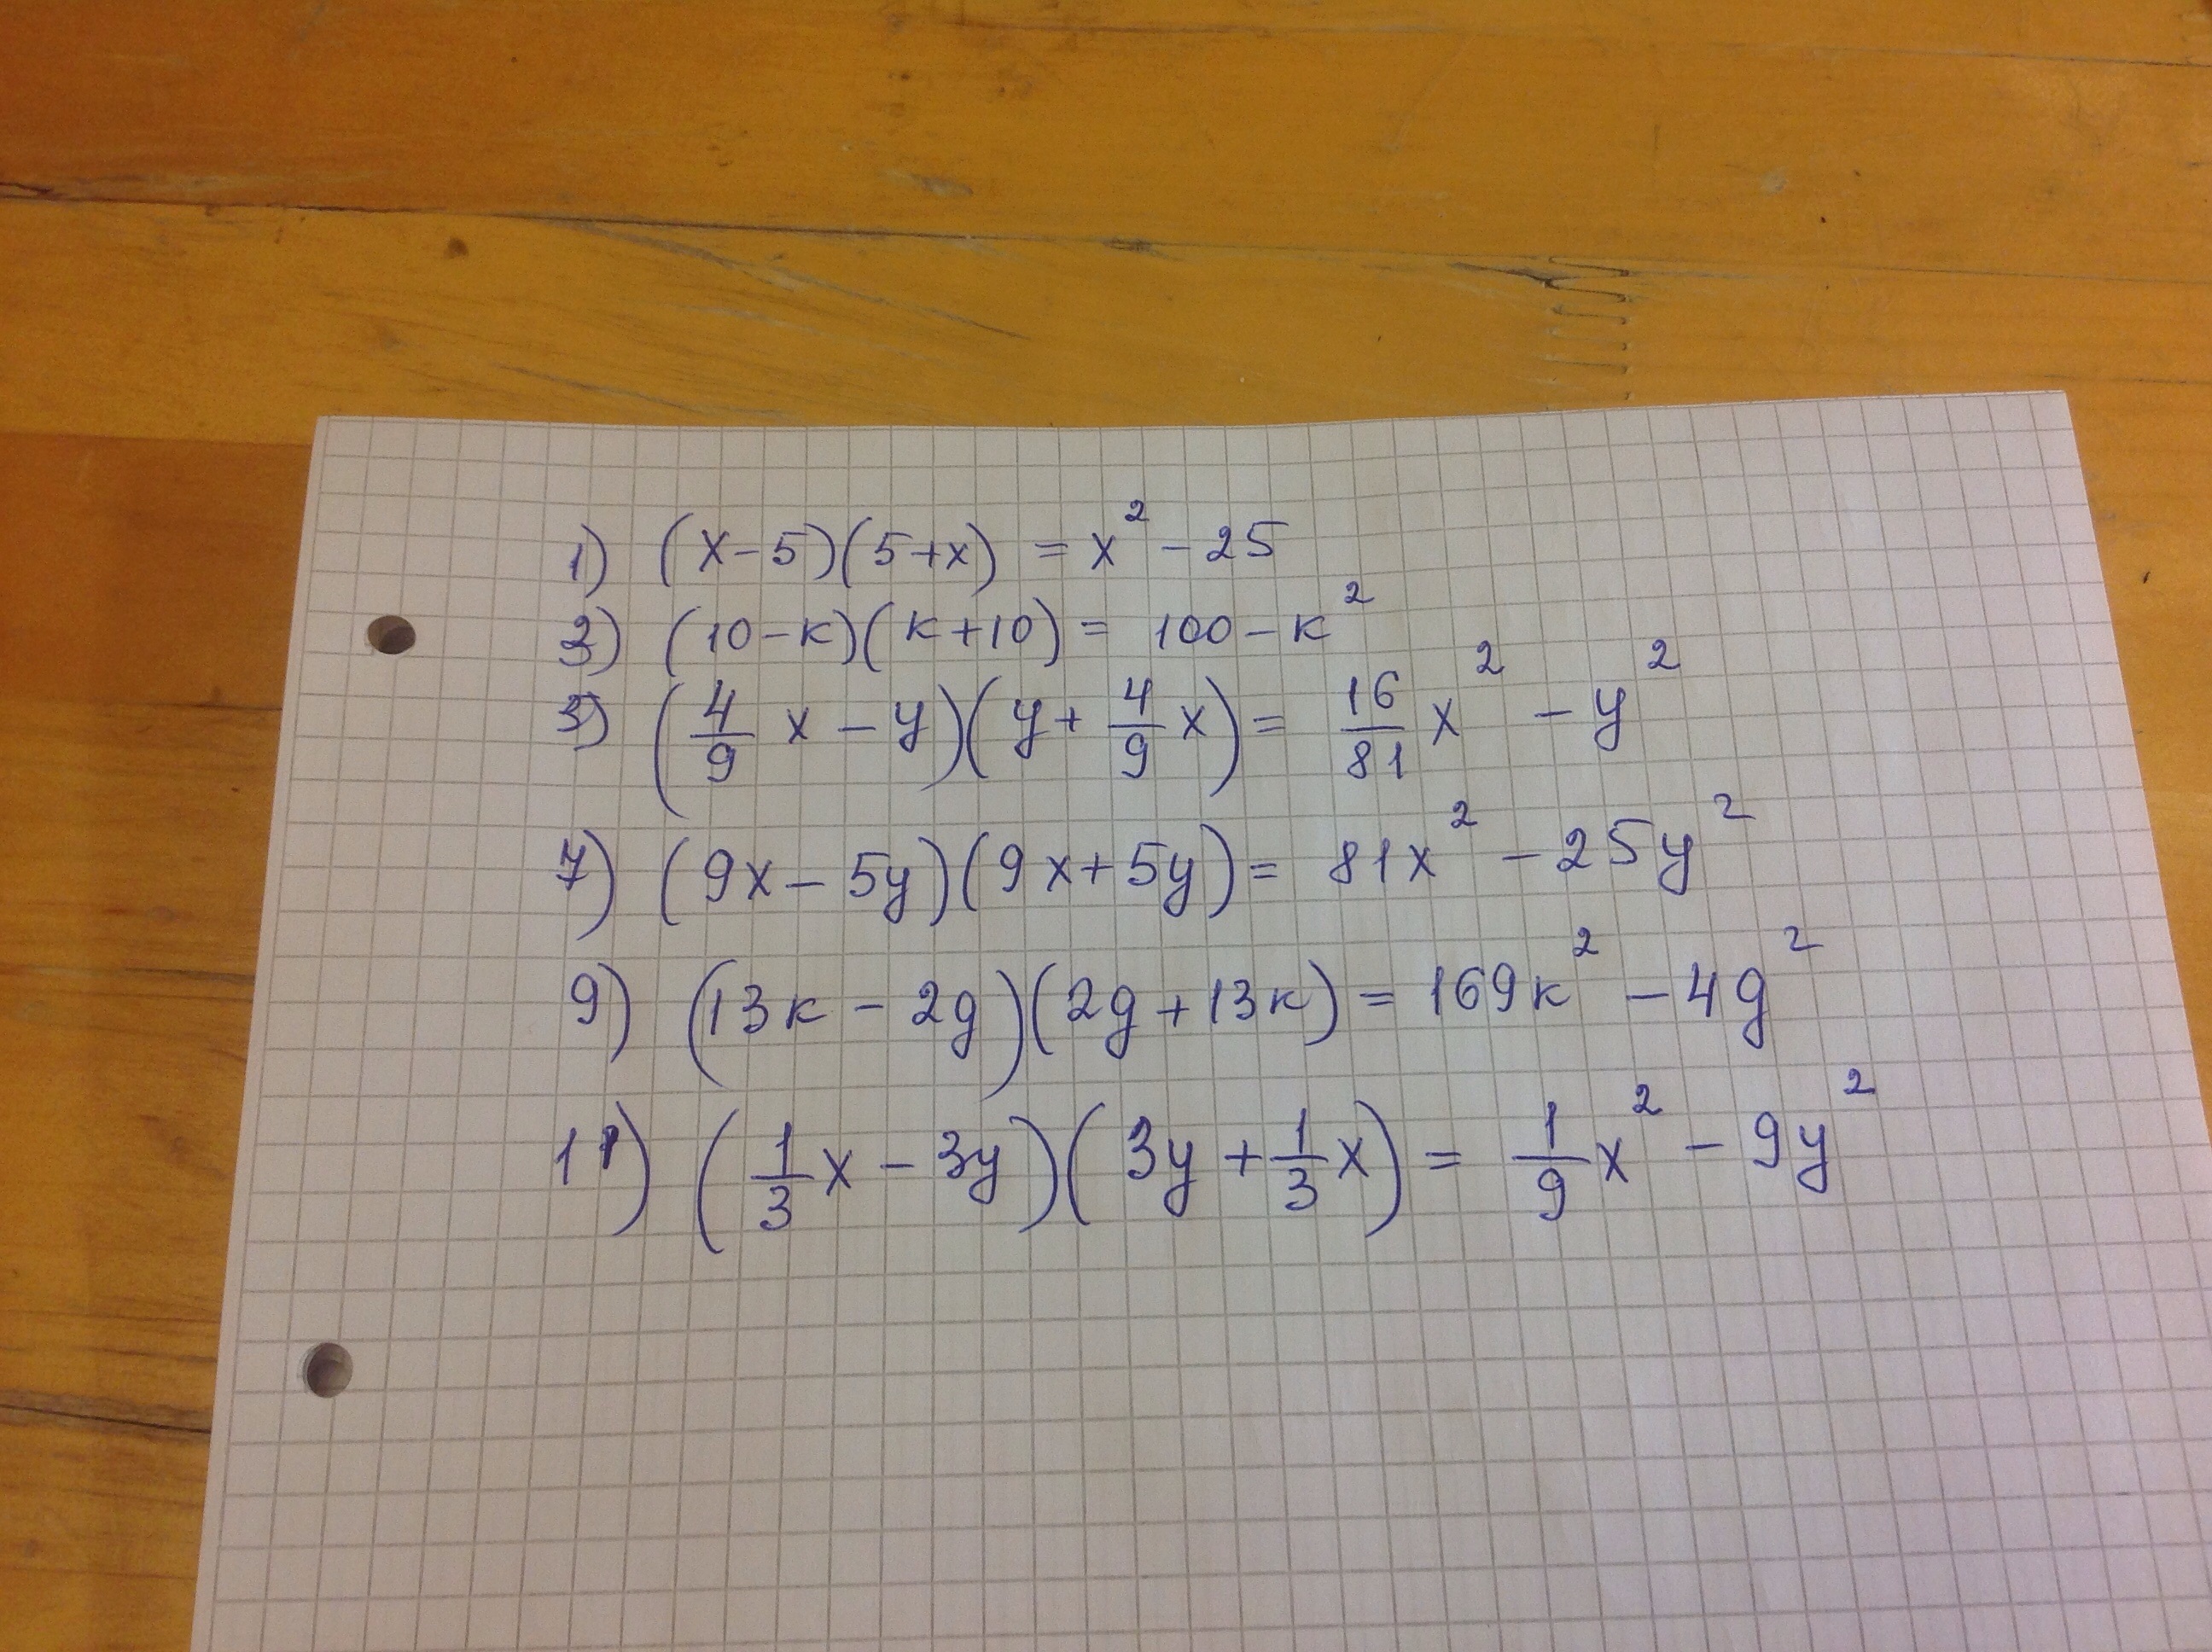 1) (x-5)(5+x) = x² - 25
3) (10-к)(к+10) = 100 - к²
5) (4/9 x - y)(y + 4/9 x) = 16/81 x² - y²
7) (9x - 5y)(9x + 5y) = 81x² - 25y²
9) (13к - 2g)(2g + 13к) = 169к² - 4g²
11) (1/3 x - 3y)(3y + 1/3 x) = 1/9 x² - 9y²